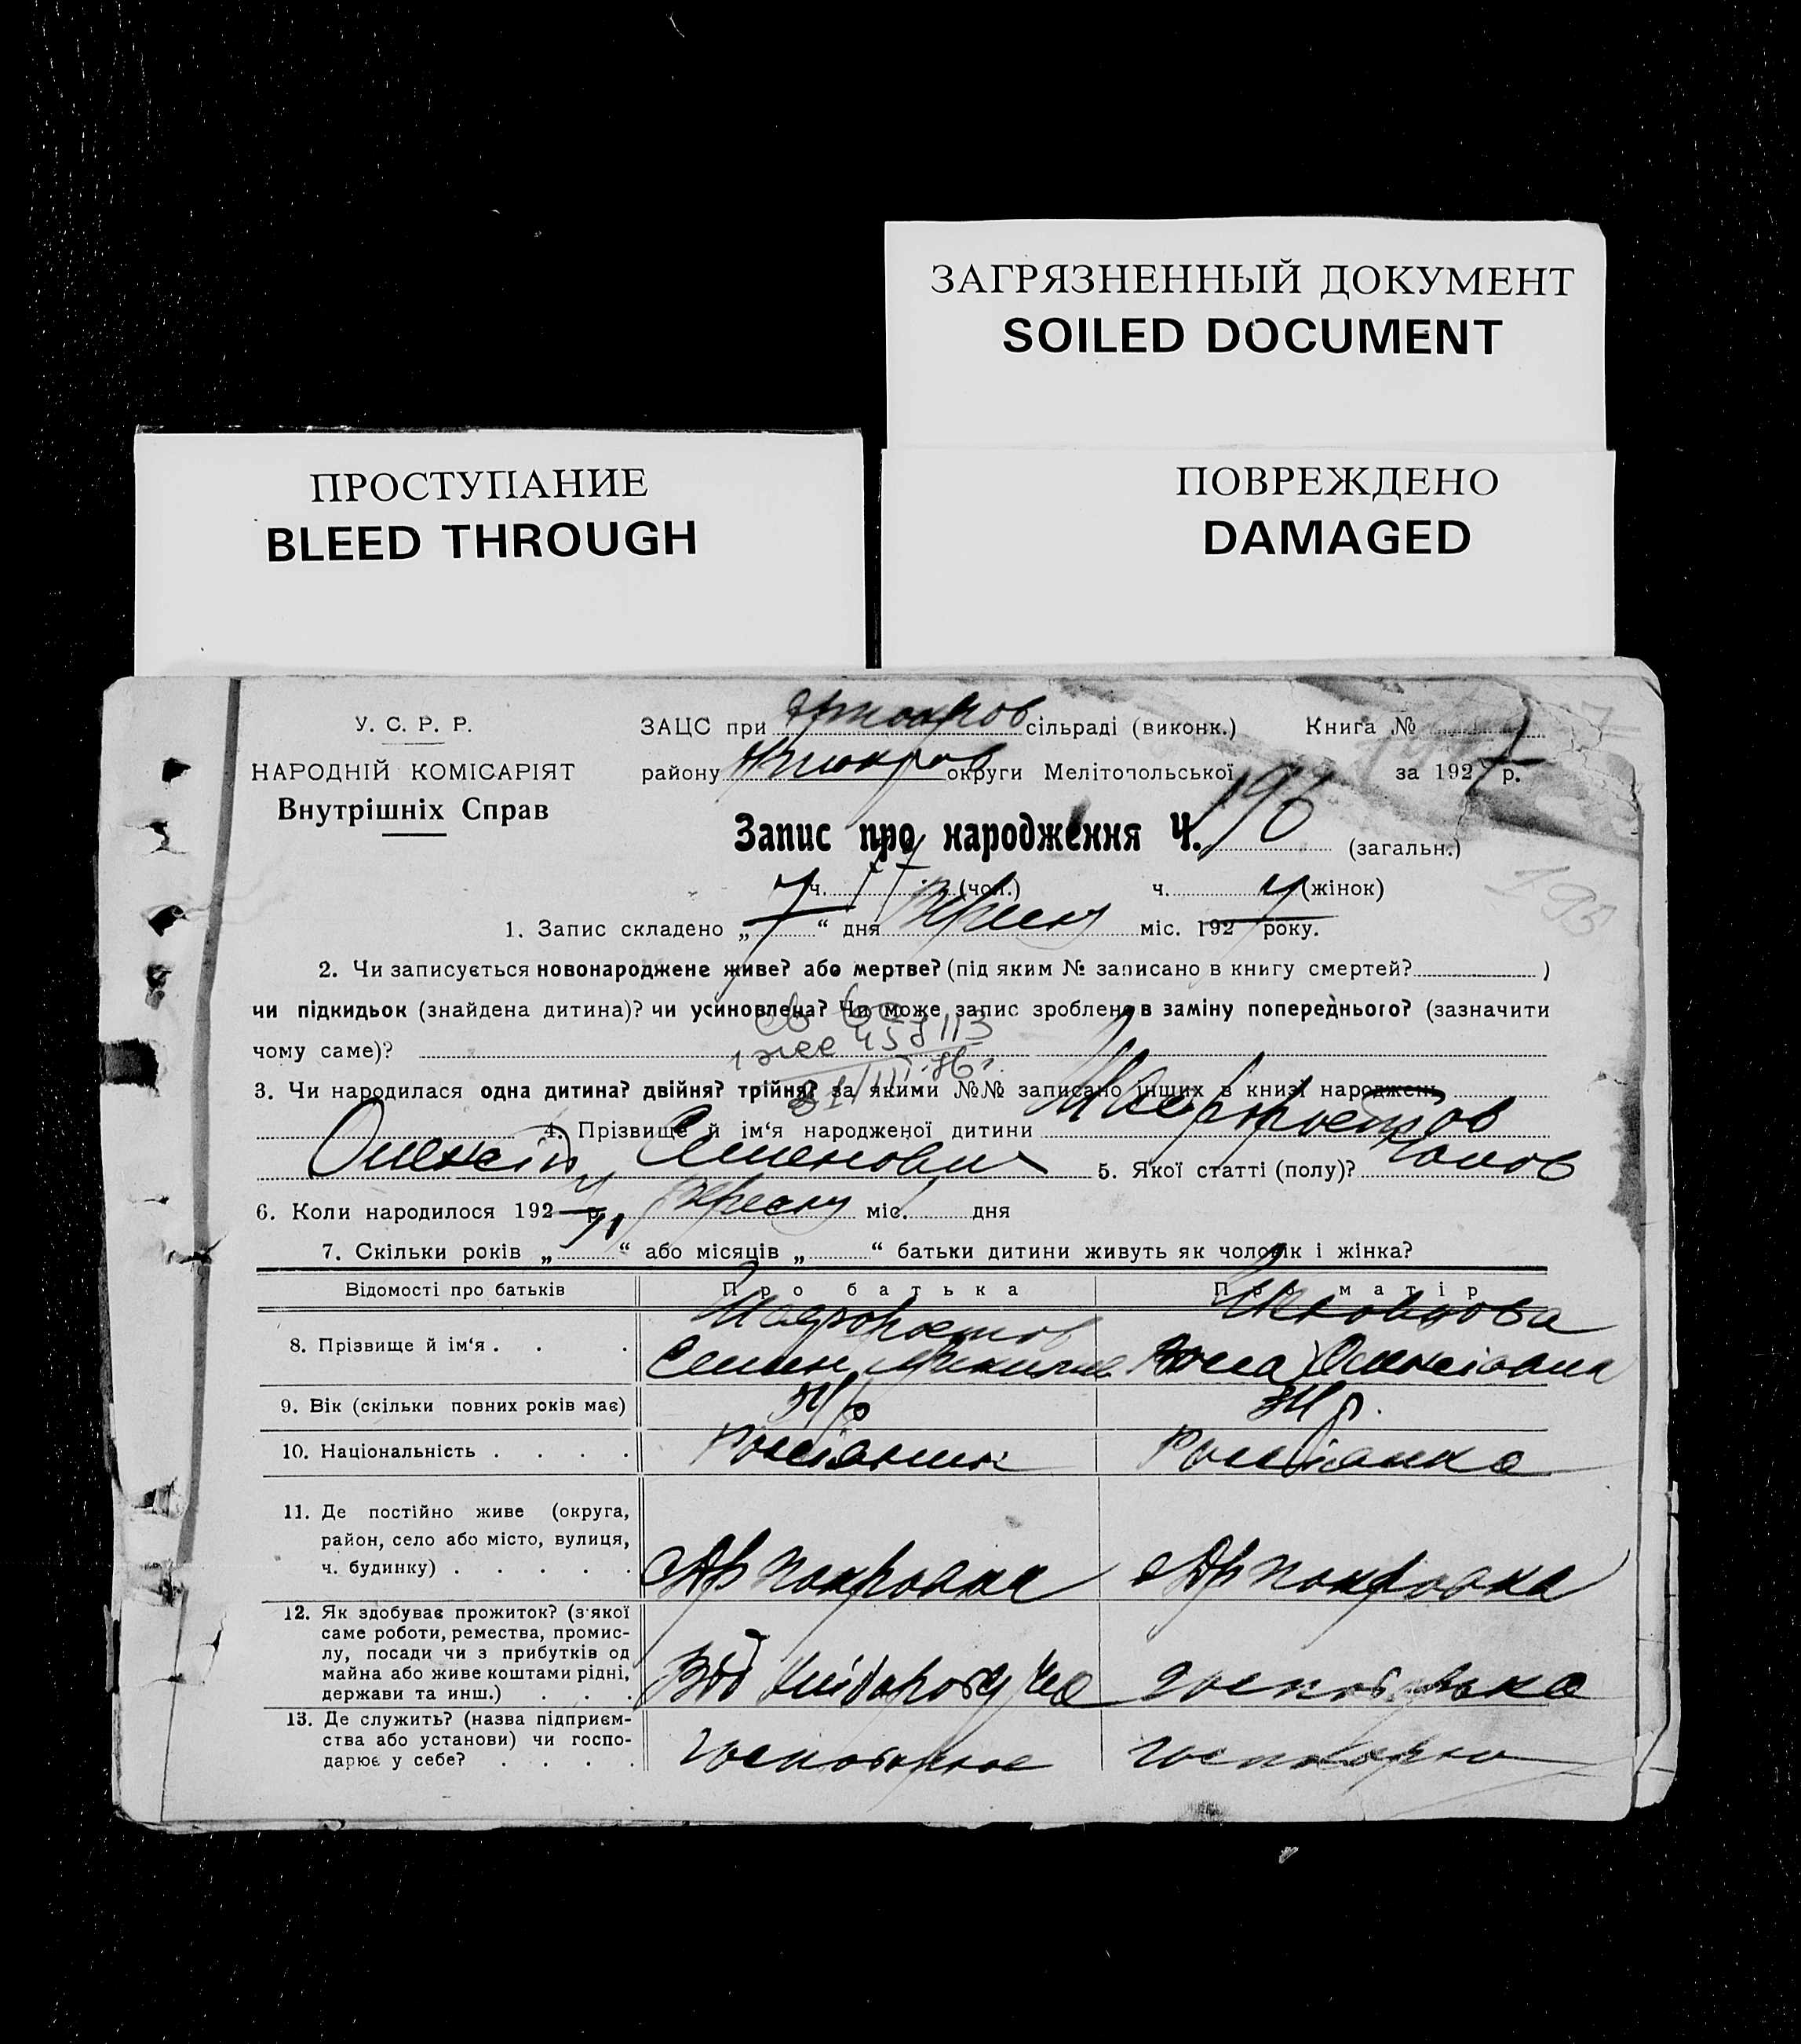 ЗАГРЯЗНЕННЫЙ ДОКУМЕНТ
SOILED DOCUMENT
ПРОСТУПАНИЕ
BLEED THROUGH
ПОВРЕЖДЕНО
DAMAGED
У. С. Р. Р.
НАРОДНІЙ КОМІСАРІЯТ
Внутрішніх Справ
ЗАЦС при сільраді (виконк.) Книга №
району округи Мелітопольської за 1927 р.
Запис про народження Ч. 196 (загальн.)
ч. (чол.) ч. (жінок)
1. Запис складено „7“ дня вресня міс. 1927 року.
2. Чи записується новонароджене живе? або мертве? (під яким № записано в книгу смертей? )
чи підкидьок (знайдена дитина)? чи усиновлена? Чи може запис зроблено в заміну попереднього? (зазначити
чому саме)?
3. Чи народилася одна дитина? двійня? трійня? за якими №№ записано інших в книзі народжень
4. Прізвище й ім‘я народженої дитини
Олексій Семенович 5. Якої статті (полу)? чолов
6. Коли народилося 1927 р. вресня міс. дня
7. Скільки років „ “ або місяців „ “ батьки дитини живуть як чоловік і жінка?
Відомості про батьків
Про батька
Про матір
8. Прізвище й ім‘я
Семен
Олексіівна
9. Вік (скільки повних років має)
10. Національність
Росіянин
Росіянка
11. Де постійно живе (округа,
район, село або місто, вулиця,
ч. будинку)
Покровка
Покровка
12. Як здобуває прожиток? (з‘якої
саме роботи, ремества, промис-
лу, посади чи з прибутків од
майна або живе коштами рідні,
держави та инш.)
Від хліборобства
13. Де служить? (назва підприєм-
ства або установи) чи госпо-
дарює у себе?
господарює